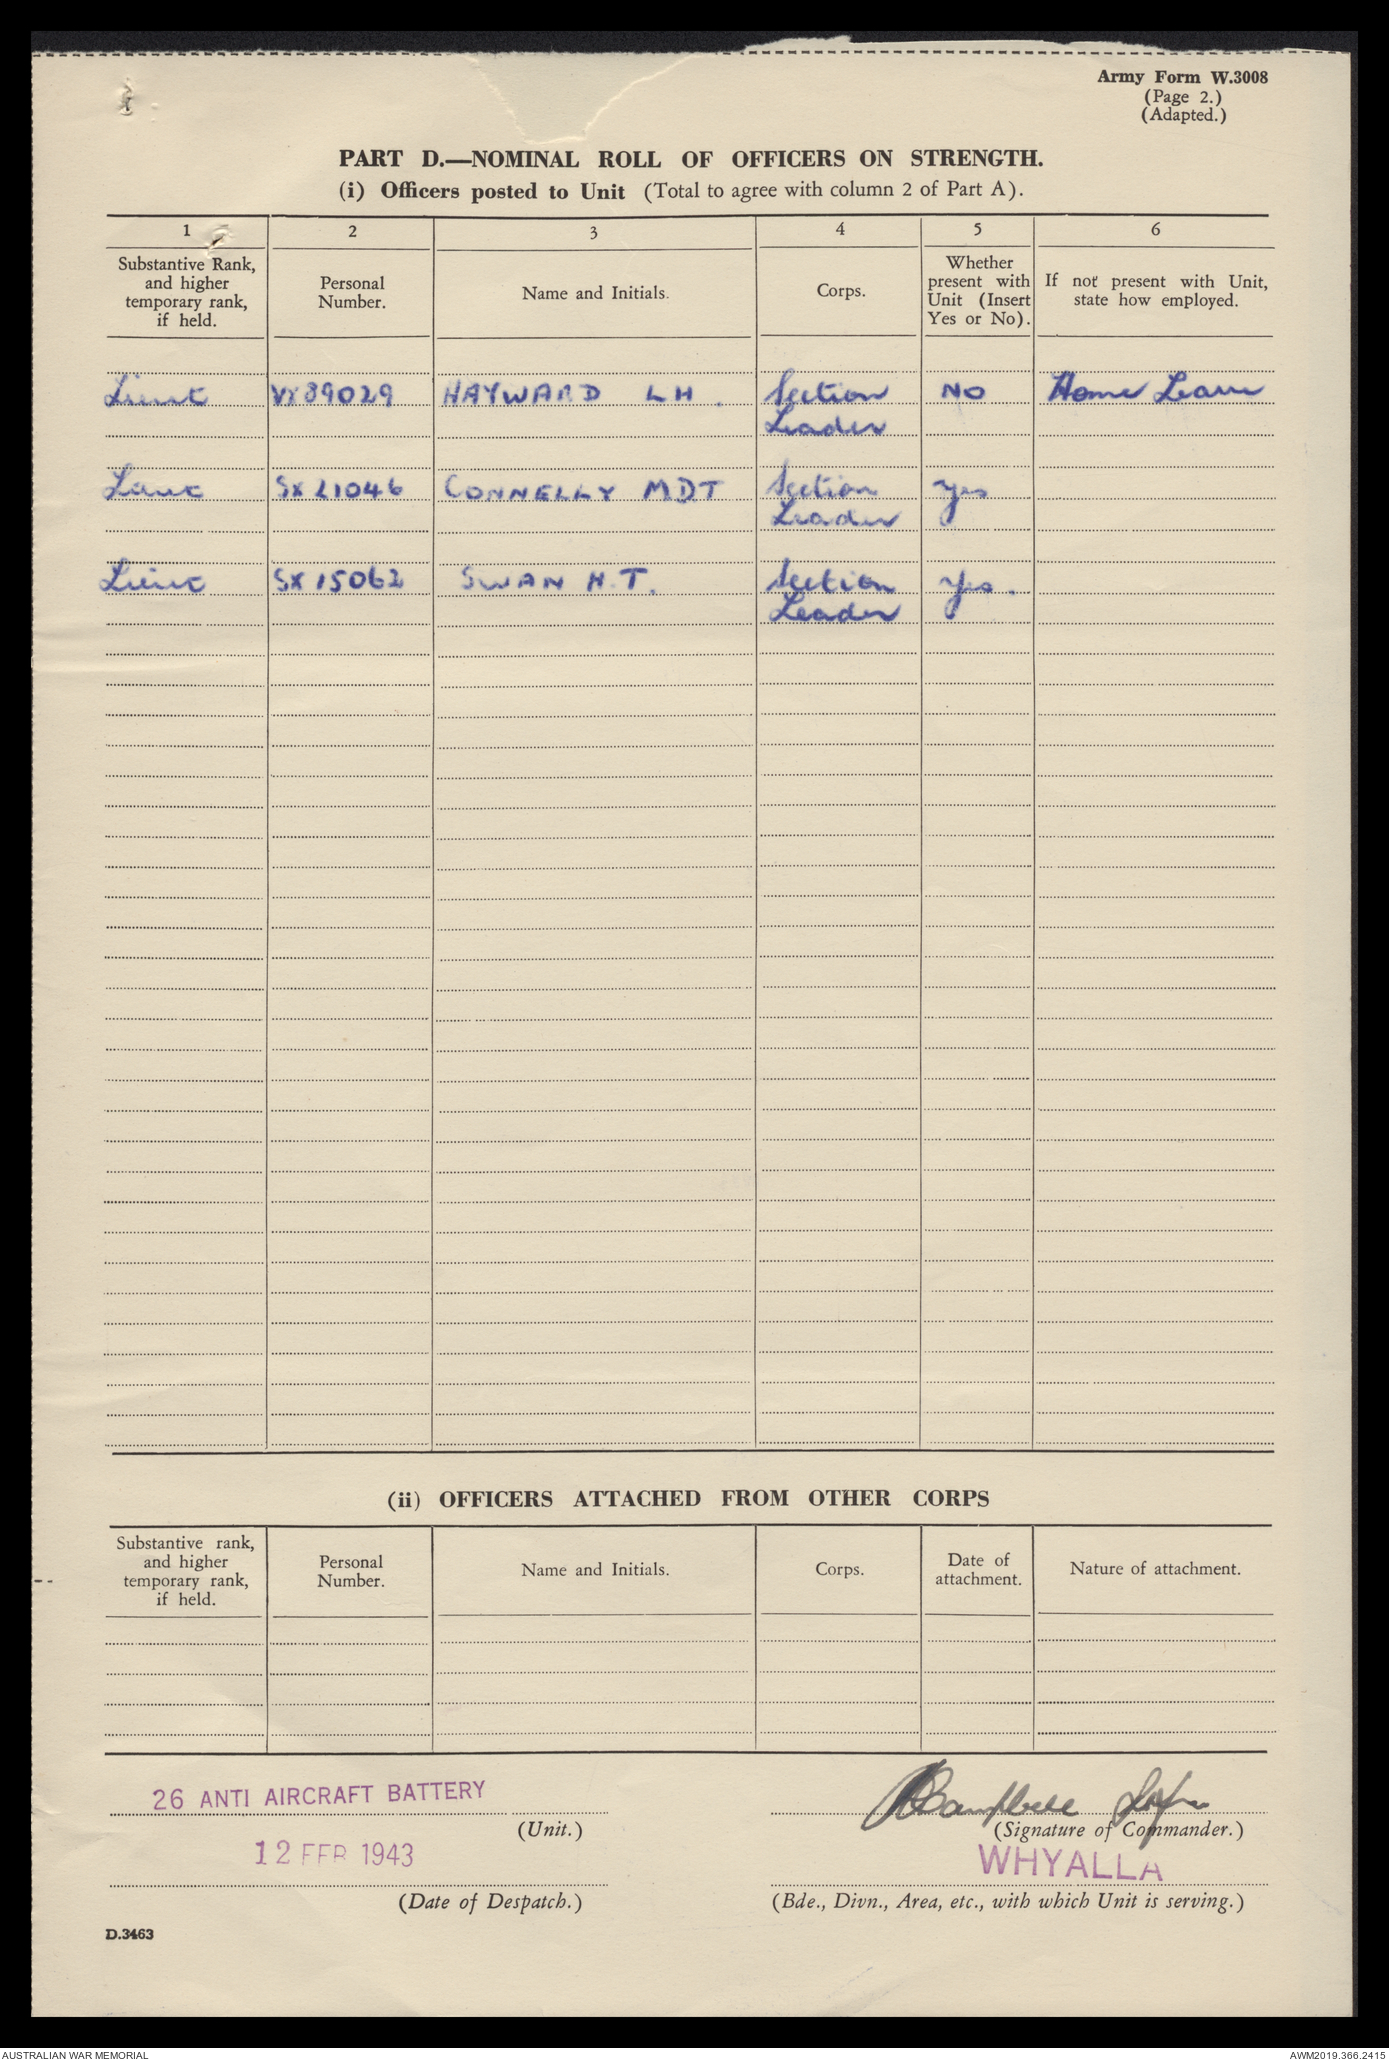 Army Form W.3008
(Page 2.)
(Adapted.)
PART D.—NOMINAL ROLL OF OFFICERS ON STRENGTH.
(i) Officers posted to Unit (Total to agree with column 2 of Part A).
1 2 3 4 5 6
Substantive Rank, and higher temporary rank, if held.
Personal Number.
Name and Initials.
Corps.
Whether present with Unit (Insert Yes or No).
If not present with Unit, state how employed.
Lieut VX89029 HAYWARD L H. Section Leader NO Home Leave
Lieut SX21046 CONNELLY MDT Section Leader Yes
Lieut SX15062 SWAN H.T. Section Leader Yes.
(ii) OFFICERS ATTACHED FROM OTHER CORPS
Substantive rank, and higher temporary rank, if held.
Personal Number.
Name and Initials.
Corps.
Date of attachment.
Nature of attachment.
26 ANTI AIRCRAFT BATTERY
(Unit.)
Campbell
(Signature of Commander.)
12 FEB 1943
(Date of Despatch.)
WHYALLA
(Bde., Divn., Area, etc., with which Unit is serving.)
D.3463
AUSTRALIAN WAR MEMORIAL
AWM2019.366.2415